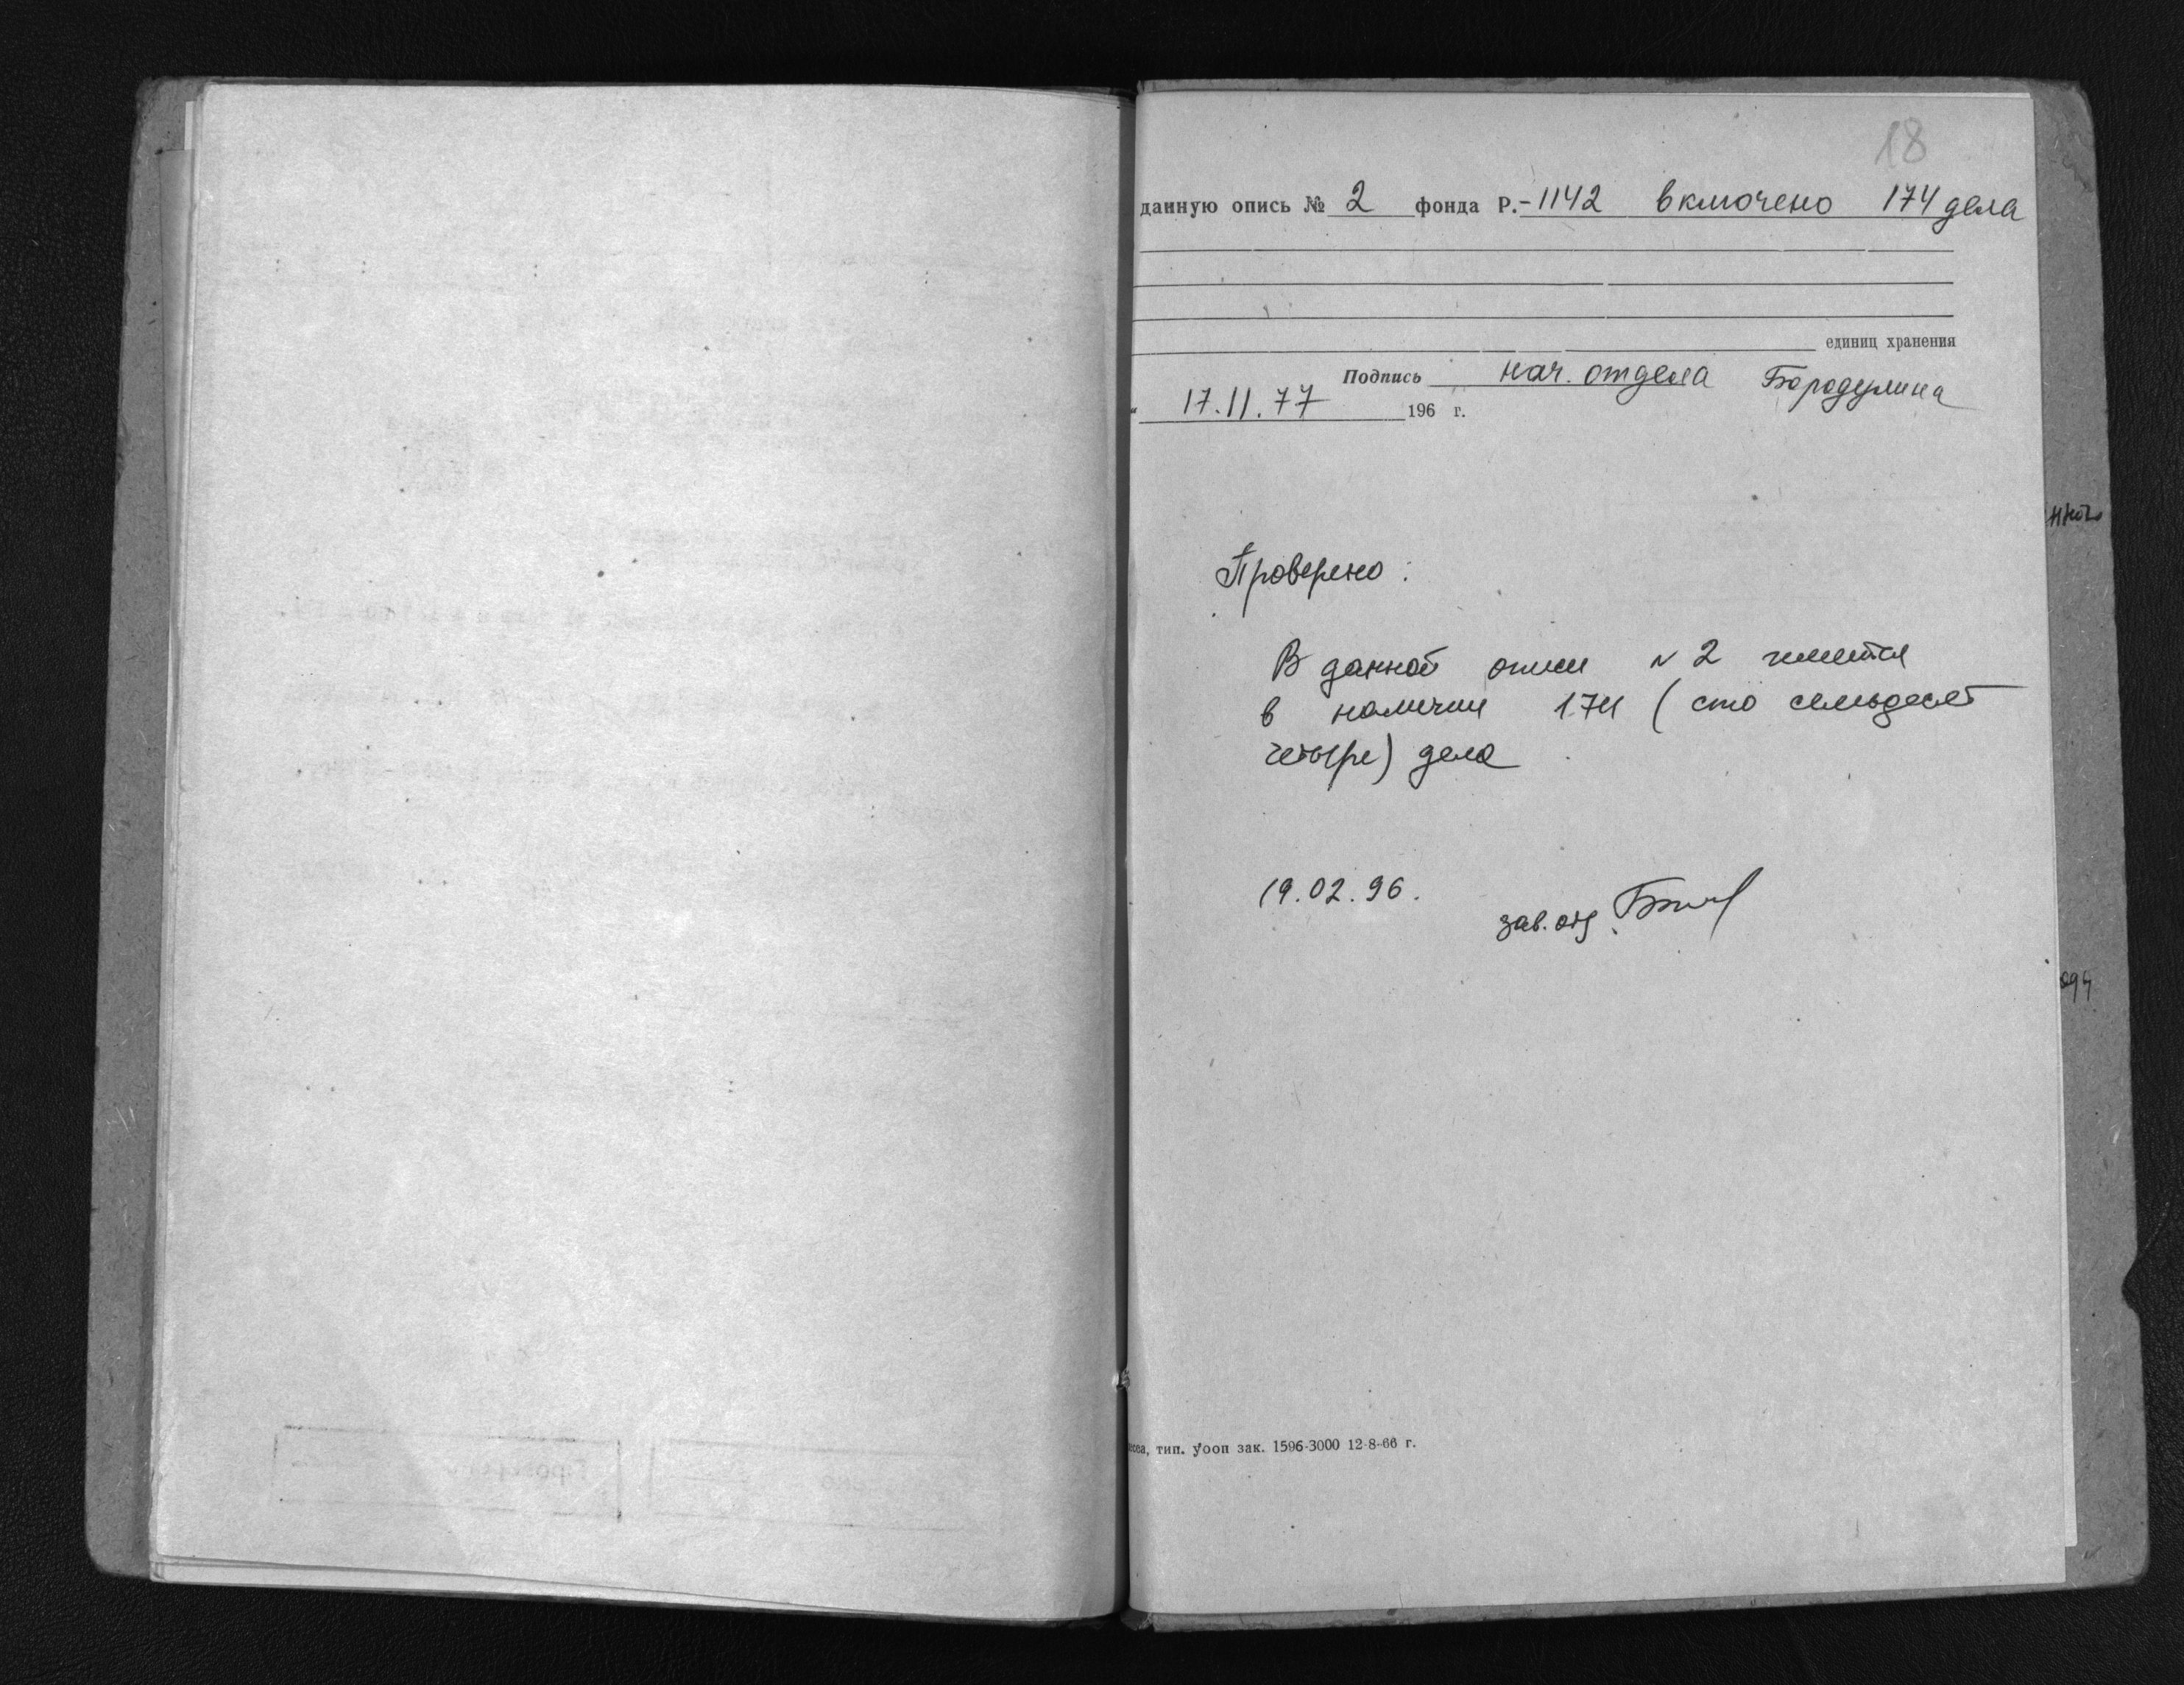 18
данную опись № 2 фонда Р.-1142 включено 174 дела
единиц хранения
Подпись нач. отдела Бородулина
" 17.11.77 196 г.
Проверено:
В данной описи N 2 имеется
в наличии 174 (сто семьдесят
четыре) дела
19.02.96.
зав. отд.
тип. уооп зак. 1596-3000 12-8-66 г.